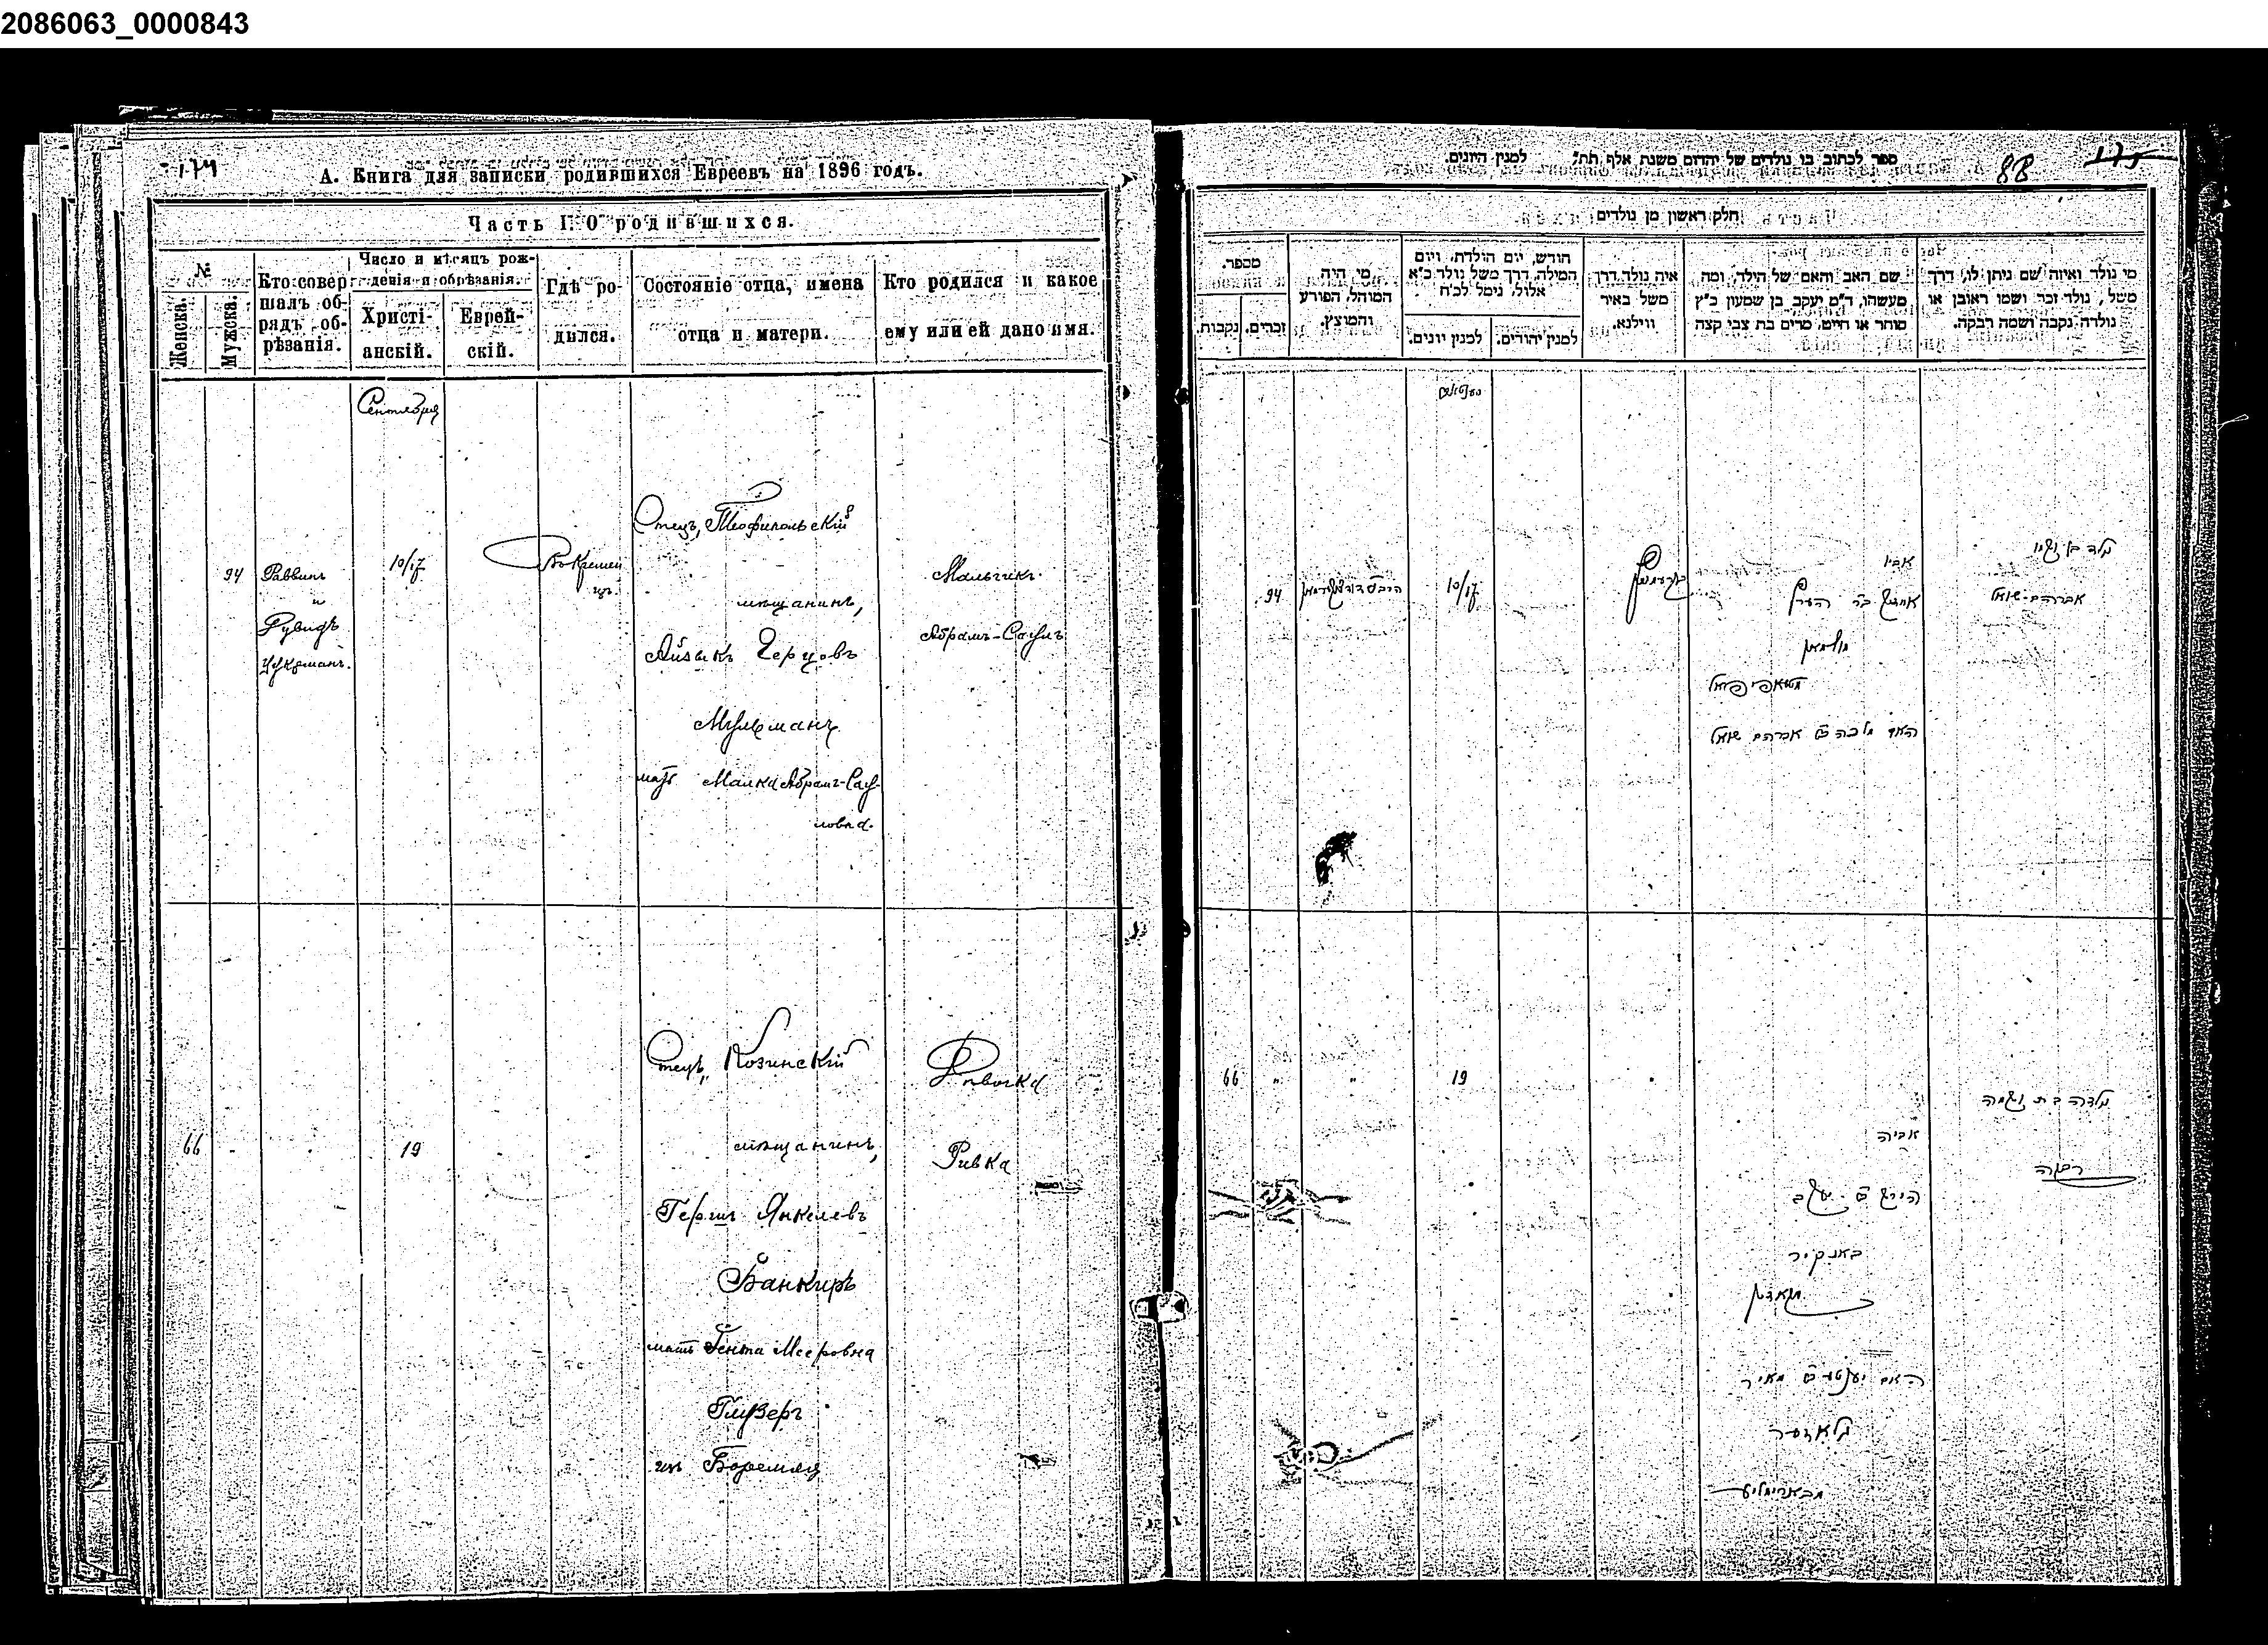 2086063_0000843
174
А. Книга для записки родившихся Евреевъ на 1896 годъ.
Часть I. О родившихся.
№
Женска.
Мужска.
Кто совер
шалъ об-
рядъ об-
рѣзанія.
Число и мѣсяцъ рож-
денія и обрѣзанія.
Христі-
анскій.
Еврей-
скій.
Гдѣ ро-
дился.
Состояніе отца, имена
отца и матери.
Кто родился и какое
ему или ей дано имя.
Сентября
94
Раввинъ
и
Рувидъ
Цукерманъ.
10/17
Въ Кремен
цѣ.
Отецъ, Теофипольскій
мѣщанинъ,
Айзыкъ Герцовъ
Мульманъ
мать Малка Абрамъ-Сау-
ловна.
Мальчикъ.
Абрамъ-Саулъ
66
19
Отецъ, Козинскій
мѣщанинъ,
Гершъ Янкелевъ
Банкиръ
мать Гентa Мееровна
Глузеръ
изъ Боремля
Дѣвочка
Ривка
ספר לכתוב בו נולדים של יהדום משנת אלף תת״ למנין היונים.
88
175
חלק ראשון מן נולדים
מספר.
נקבות.
זכרים.
מי היה
המוהל, הפורע
והמוצץ.
חודש, יום הולדת, ויום
המילה, דרך משל נולד כ״א
אלול, נימל לכ״ח
למנין יונים.
למנין יהודים.
איה נולד, דרך
משל באיר
ווילנא.
שם האב והאם של הילד, ומה
מעשהו, ד״מ יעקב בן שמעון כ״ץ
סוחר או חייט, מרים בת צבי קצה
מי נולד ואיזה שם ניתן לו, דרך
משל, נולד זכר ושמו ראובן או
נולדה נקבה ושמה רבקה.
94
10/17
אביו
מולמאן
האם מלכה בת אברהם שאול
אברהם שאול
66
19
אביה
הירש ב״ר יעקב
באנקיר
האם יענטע ב״ר מאיר
גלאזער
רבקה